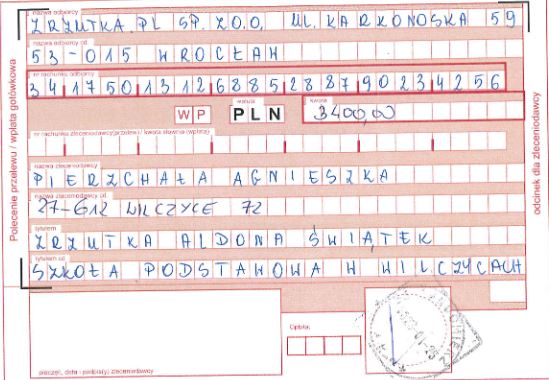 nazwa odbiorcy
ZRZUTKA.PL SP. ZO.O. UL. KARKONOSKA 59
nazwa odbiorcy cd.
53-015 WROCŁAW
nr rachunku odbiorcy
34175013126885288790234256
WP waluta PLN kwota 3400,00
nr rachunku zleceniodawcy (przelew) / kwota słownie (wpłata)
nazwa zleceniodawcy
PIERZCHAŁA AGNIESZKA
nazwa zleceniodawcy cd.
27-612 WILCZYCE 72
tytułem
ZRZUTKA ALDONA ŚWIĄTEK
tytułem cd.
SZKOŁA PODSTAWOWA W WILCZYCACH
Opłata:
pieczęć, data i podpis(y) zleceniodawcy
Polecenie przelewu / wpłata gotówkowa
odcinek dla zleceniodawcy